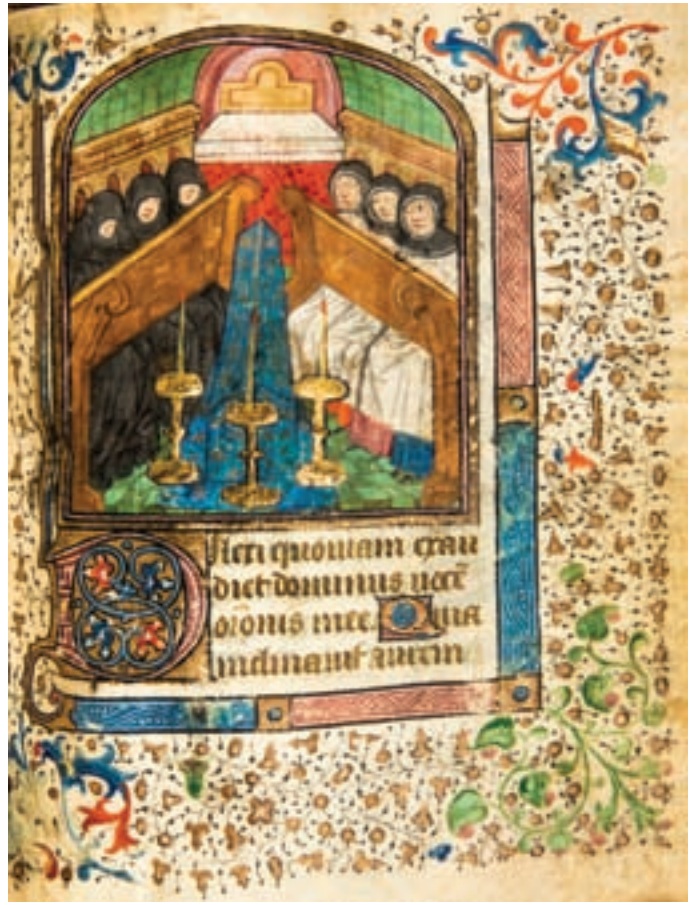 Dilexi quoniam exau
diet dominus vocē
or̄onis mee. Quia
inclinavit aurem